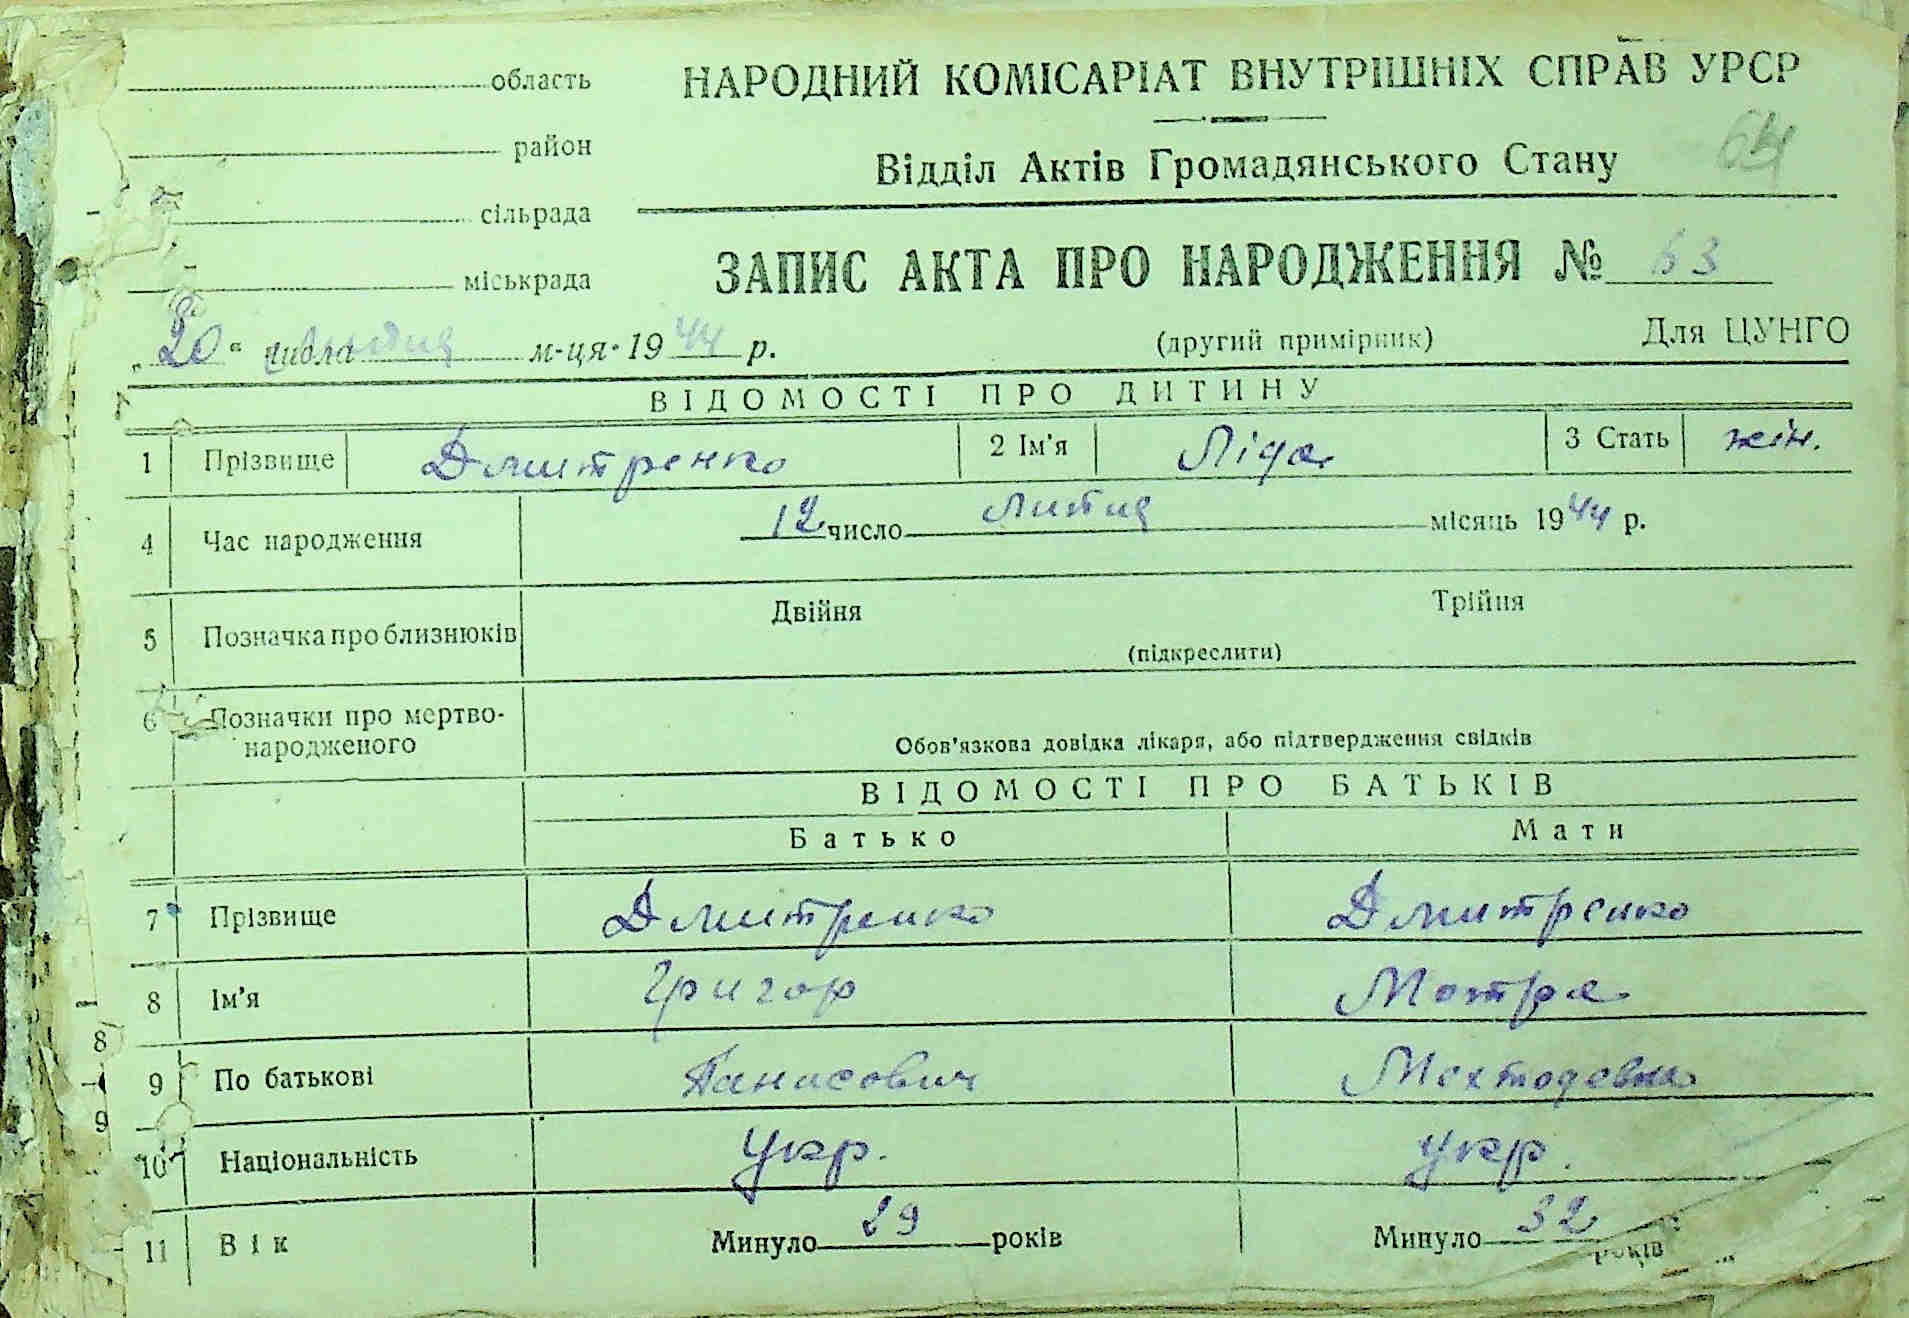 область
район
сільрада
міськрада
НАРОДНИЙ КОМІСАРІАТ ВНУТРІШНІХ СПРАВ УРСР
Відділ Актів Громадянського Стану
64
ЗАПИС АКТА ПРО НАРОДЖЕННЯ № 63
„20“ числа м-ця 1944 р. (другий примірник) Для ЦУНГО
ВІДОМОСТІ ПРО ДИТИНУ
1 Прізвище Дмитренко 2 Ім'я Ліда 3 Стать жін.
4 Час народження 12 число Лютий місяць 1944 р.
5 Позначка про близнюків Двійня Трійня
(підкреслити)
6 Позначки про мертво-
народженого
Обов'язкова довідка лікаря, або підтвердження свідків
ВІДОМОСТІ ПРО БАТЬКІВ
Батько Мати
7 Прізвище Дмитренко Дмитренко
8 Ім'я Григор Мотря
9 По батькові Панасович Мехтодевна
10 Національність Укр. Укр.
11 Вік Минуло 29 років Минуло 32 років
8
9